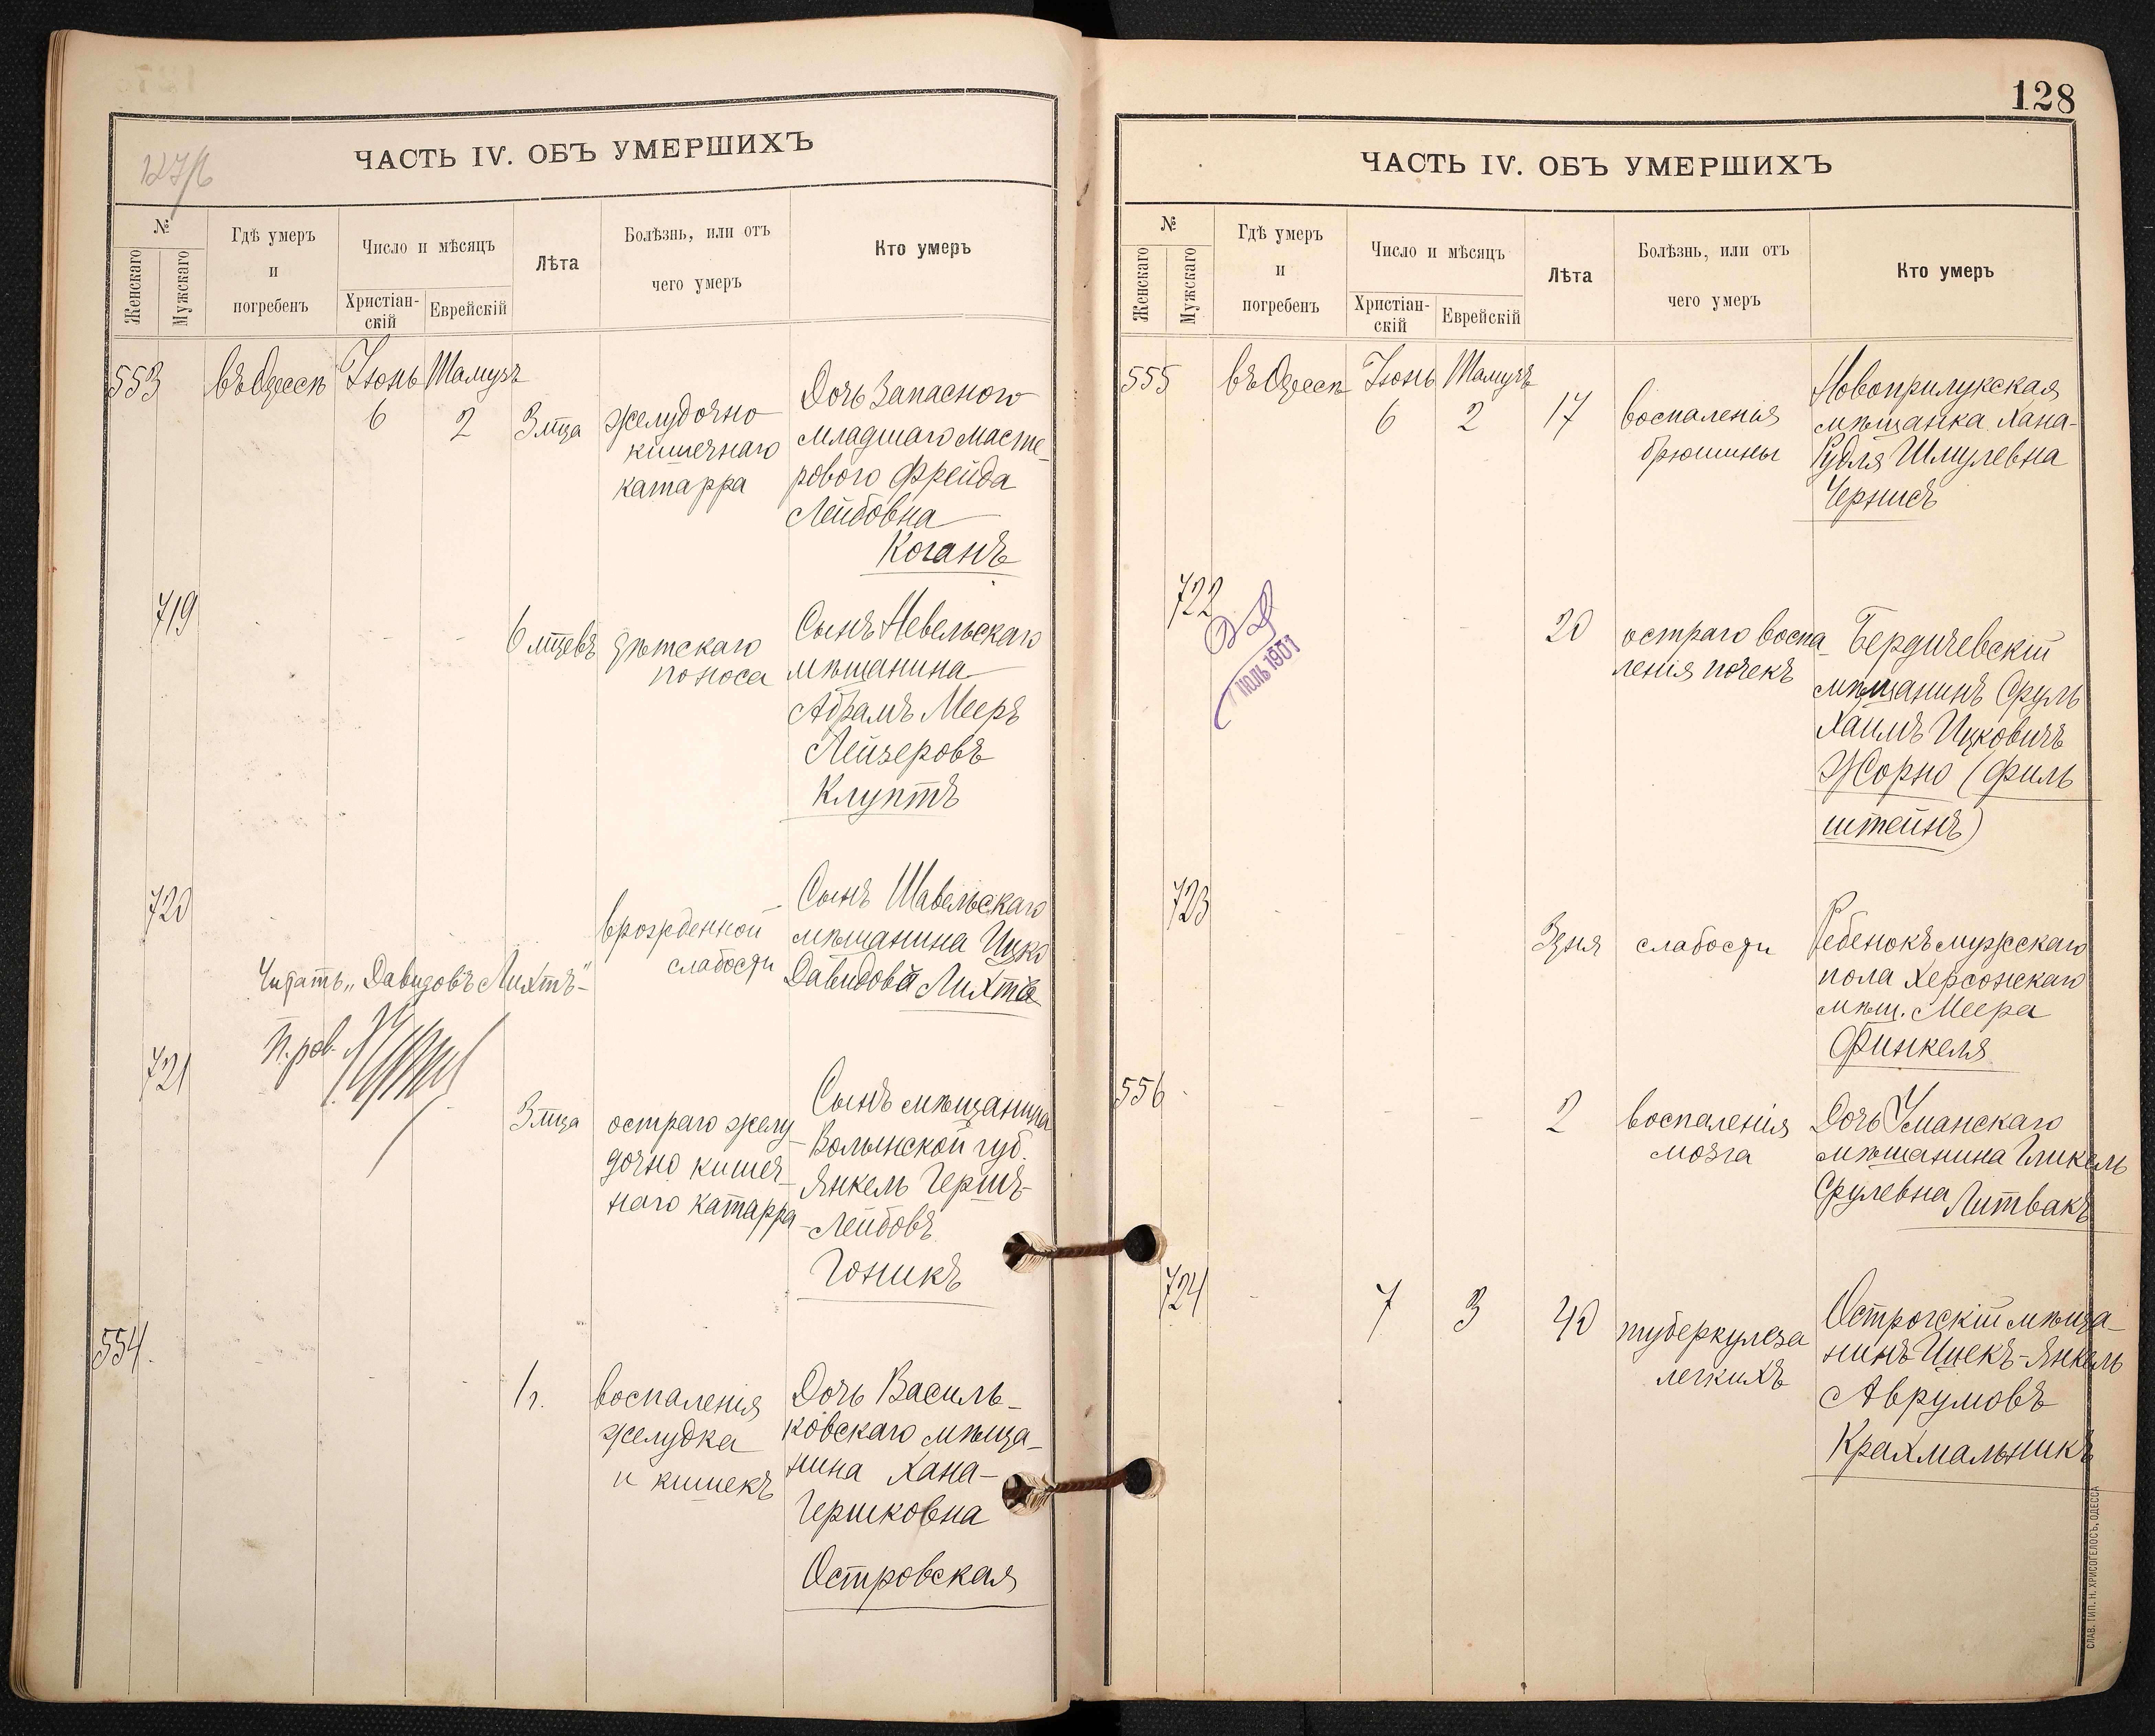 127/б
ЧАСТЬ IV. ОБЪ УМЕРШИХЪ
№
Женскаго
Мужскаго
Гдѣ умеръ
и
погребенъ
Число и мѣсяцъ
Христіан-
скій
Еврейскій
Лѣта
Болѣзнь, или отъ
чего умеръ
Кто умеръ
553 въ Одессѣ Іюнь Тамузъ
6 2 3 мца
желудочно
кишечнаго
катарра
Дочь Запаснаго
младшаго масте-
рового Фрейда
Лейбовна
Коганъ
719
6 мцевъ
дѣтскаго
поноса
Сынъ Невельскаго
мѣщанина
Абрамъ Мееръ
Лейзеровъ
Клуптъ
720
врожденной
слабости
Сынъ Шавельскаго
мѣщанина Ицко
Давидовъ Лихтъ
Читать „Давидовъ Лихтъ"-
721
3 мца
остраго желу-
дочно кишеч-
наго катарра
Сынъ мѣщанина
Волынской губ.
Янкель Гершъ-
Лейбовъ
Гоникъ
554.
1 г.
воспаленія
желудка
и кишекъ
Дочь Василь-
ковскаго мѣща-
нина Хана-
Гершковна
Островская
128
ЧАСТЬ IV. ОБЪ УМЕРШИХЪ
№
Женскаго
Мужскаго
Гдѣ умеръ
и
погребенъ
Число и мѣсяцъ
Христіан-
скій
Еврейскій
Лѣта
Болѣзнь, или отъ
чего умеръ
Кто умеръ
555 въ Одессѣ Іюнь Тамузъ
6 2 17
воспаленія
брюшины
Новоприлукская
мѣщанка Хана-
Рудля Шмулевна
Чернисъ
722
іюль 1901
20
остраго воспа-
ленія почекъ
Бердичевскій
мѣщанинъ Сруль
Хаимъ Ицковичъ
Жорно (Филь
штейнъ)
723
3 дня
слабости
Ребенокъ мужскаго
пола Херсонскаго
мѣщ. Меера
Финкеля
556
2
воспаленія
мозга
Дочь Уманскаго
мѣщанина Гликель
Срулевна Литвакъ
724
7 3 40
туберкулеза
легкихъ
Острогскій мѣща-
нинъ Ицекъ-Янкель
Аврумовъ
Крахмальникъ
СЛАВ. ТИП. Н. ХРИСОГЕЛОСЪ, ОДЕССА